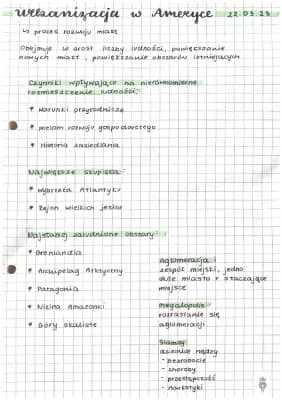 Urbanizacja w Ameryce 22.03.23
↳ proces rozwoju miast
Obejmuje wzrost liczby ludności, powiększanie
nowych miast, powiększanie obszarów istniejących
Czynniki wpływające na nierównomierne
rozmieszczenie ludności:
warunki przyrodnicze
poziom rozwoju gospodarczego
Historia zasiedlania
Największe skupiska:
wybrzeża Atlantyku
Rejon wielkich jezior
Najsłabiej zaludnione obszary:
Grenlandia
Archipelag Arktyczny
Patagonia
Nizina Amazonki
Góry Skaliste
Aglomeracja:
zespół miejski, jedno
duże miasto + otaczające
miejsce
megalopolis:
rozrastanie się
aglomeracji
Slamsy
dzielnice nędzy
- bezrobocie
- choroby
- przestępczość
- narkotyki